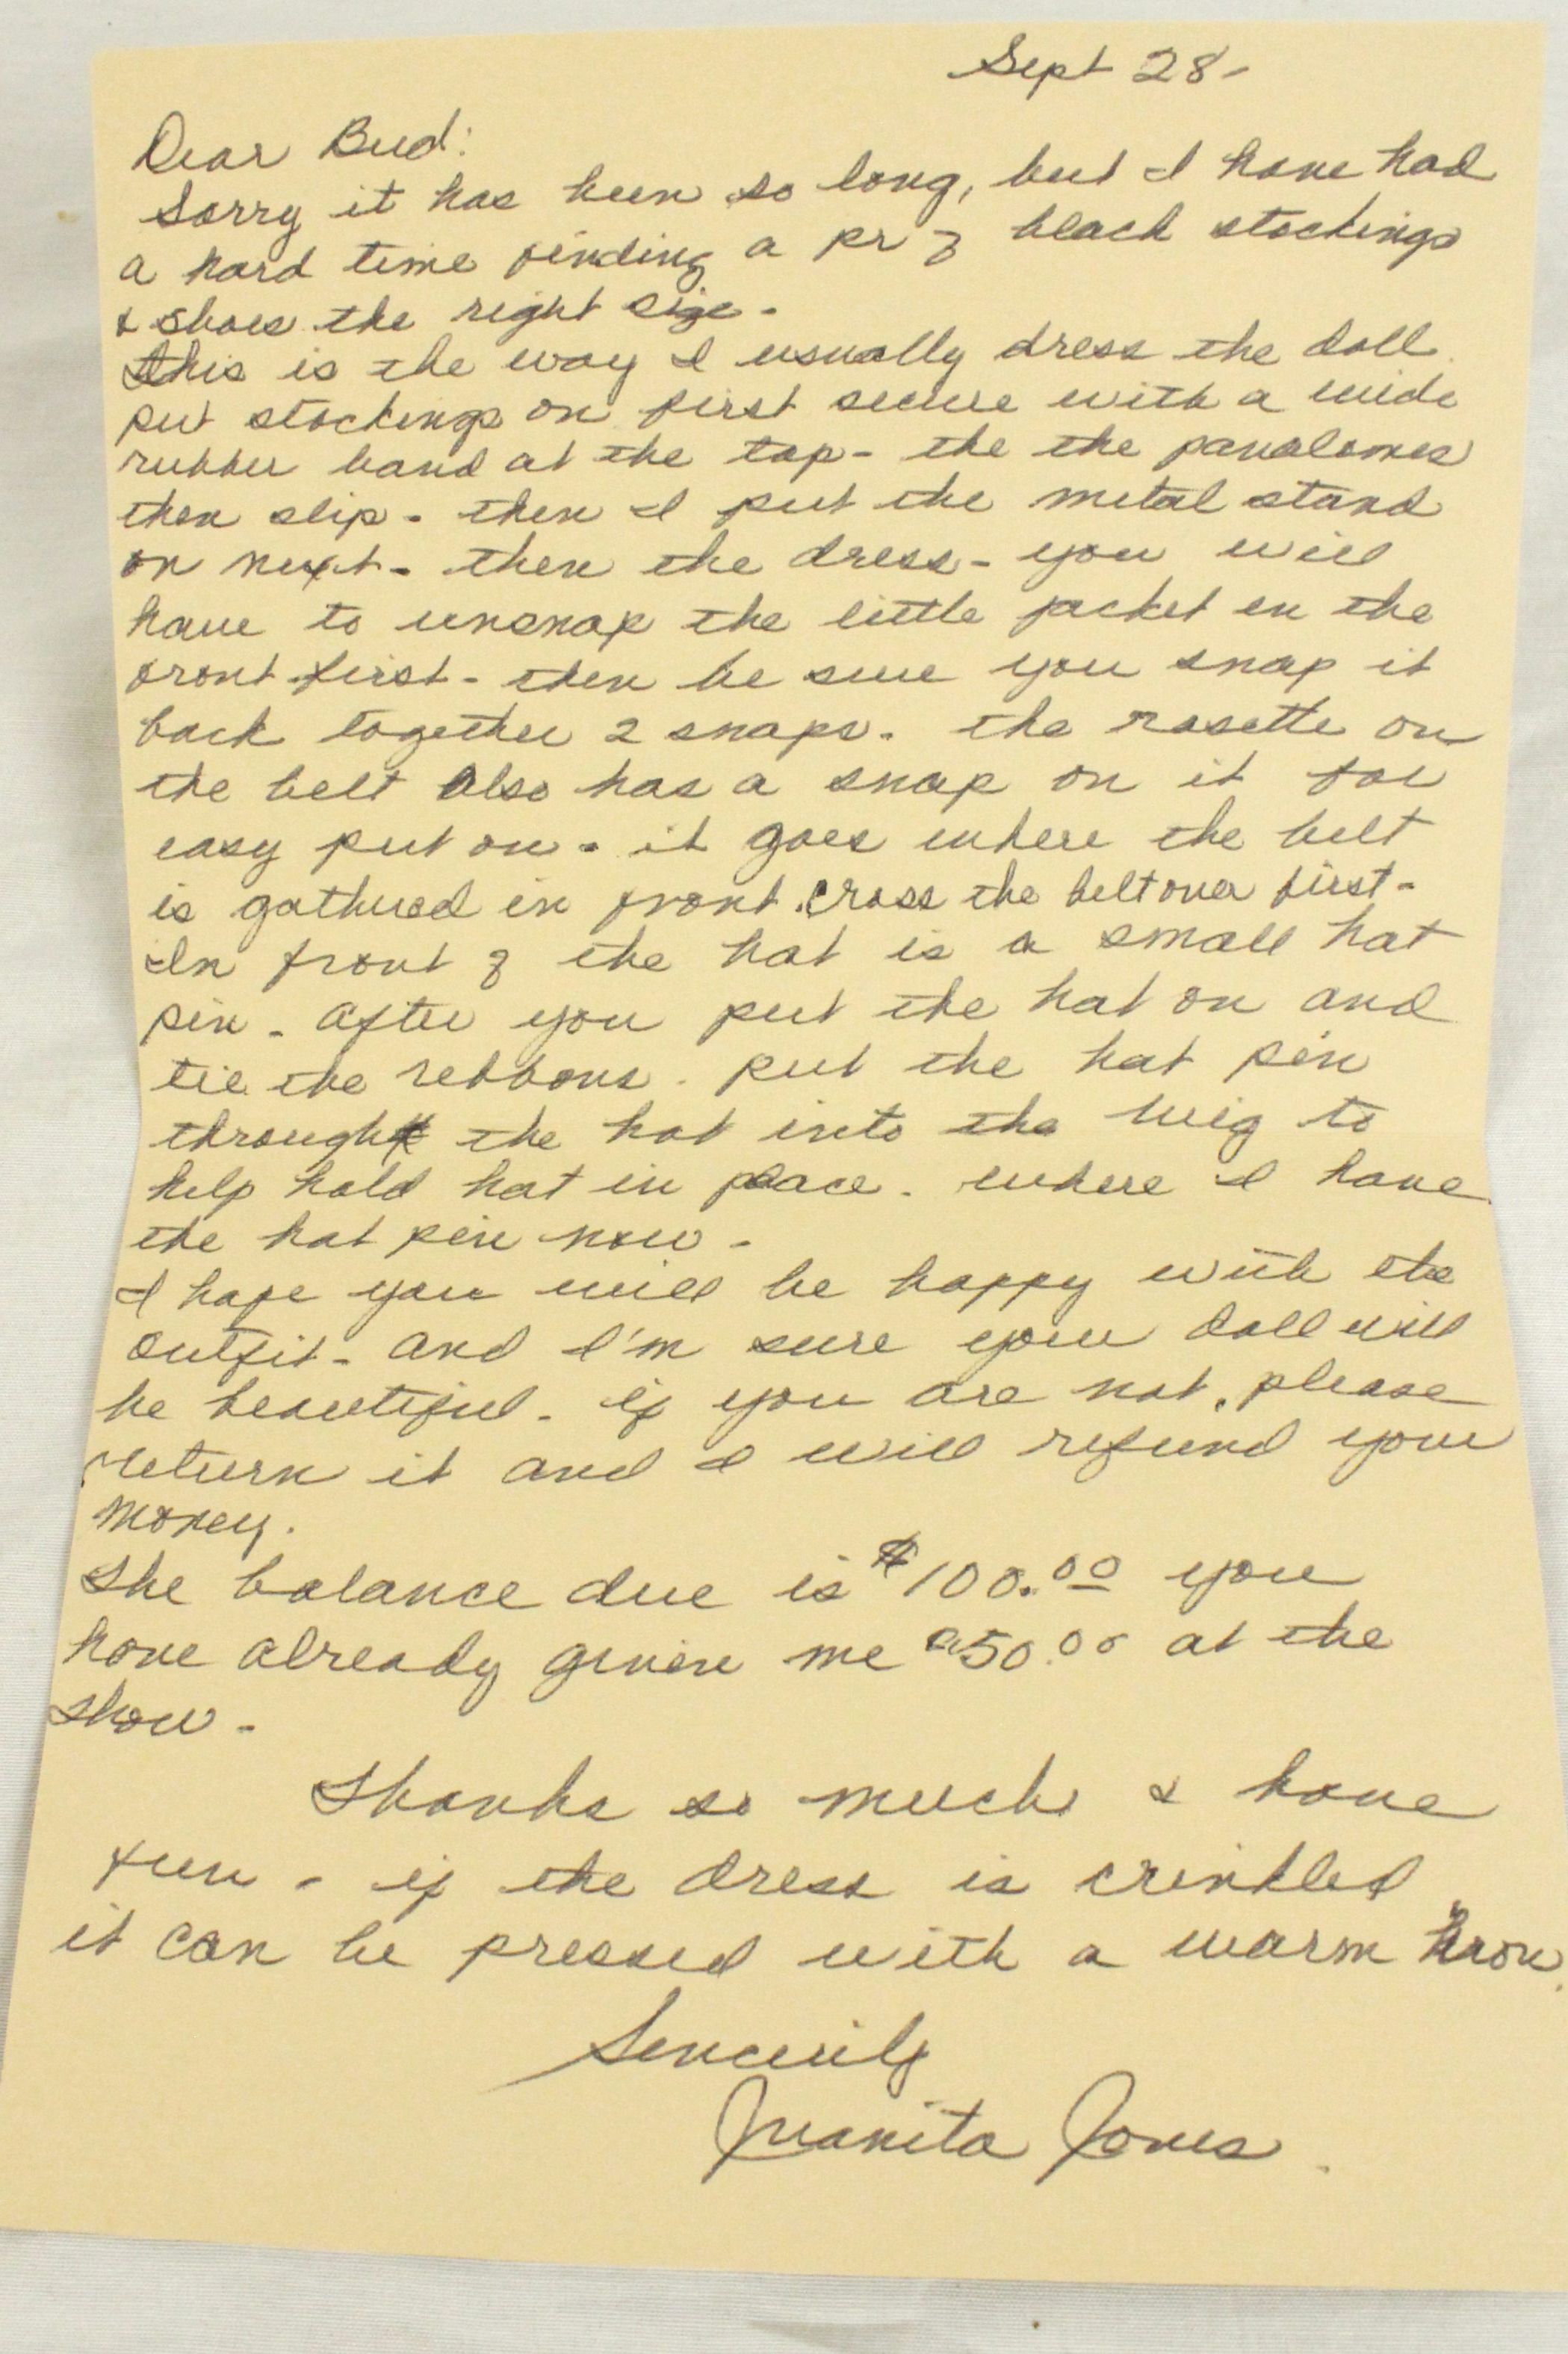 Sept 28-
Dear Bud:
Sorry it has been so long, but I have had
a hard time finding a pr of black stockings
& shoes the right size.
This is the way I usually dress the doll.
put stockings on first secure with a wide
rubber band at the top - the the panalones
then slip - then I put the metal stand
on next - then the dress - you will
have to unsnap the little jacket in the
front first - then be sure you snap it
back together 2 snaps. the rosette on
the belt also has a snap on it for
easy put on - it goes where the belt
is gathered in front. cross the belt over first -
In front of the hat is a small hat
pin - after you put the hat on and
tie the ribbons. put the hat pin
through the hat into the wig to
help hold hat in place. where I have
the hat pin now -
I hope you will be happy with the
outfit - and I'm sure your doll will
be beautiful. if you are not, please
return it and I will refund your
money.
The balance due is $100.00 you
have already given me 50.00 at the
show -
Thanks so much & have
fun - if the dress is crinkled
it can be pressed with a warm iron.
Sincerily
Juanita Jones